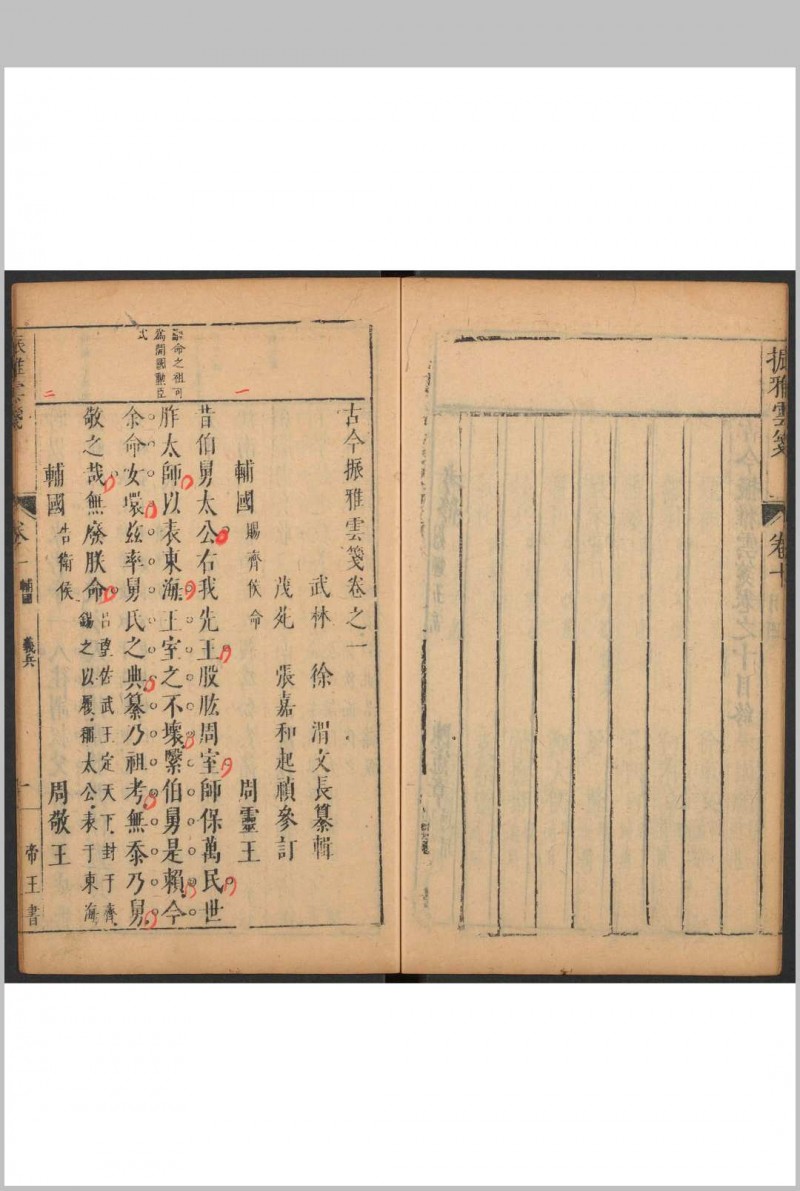 振雅雲箋
卷十
古今振雅雲箋卷之一
武林 徐 渭文長纂輯
茂苑 張嘉和起禎參訂
一
輔國 賜齊侯命 周靈王
昔伯舅太公右我先王股肱周室師保萬民世
胙太師以表東海王室之不壞繄伯舅是賴今
余命女環茲率舅氏之典纂乃祖考無忝乃舅
敬之哉無廢朕命 呂望佐武王定天下封于齊
錫之以履稱太公表于東海
命之祖可
為開國勳臣
式
二
輔國 告衛侯 周敬王
振雅雲箋
卷一 輔國 義兵 一 帝王書